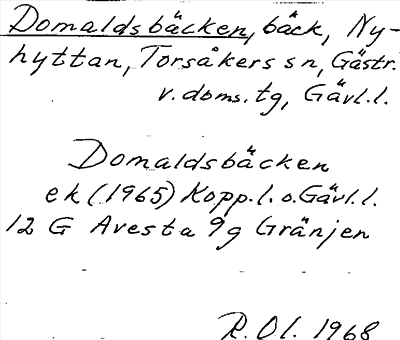 Domaldsbäcken, bäck, Ny-
hyttan, Torsåkers sn, Gästr.
v. doms. tg, Gävl. l.
Domaldsbäcken
ek (1965) Kopp. l. o. Gävl. l.
12 G Avesta 9g Gränjen
R. Ol. 1968